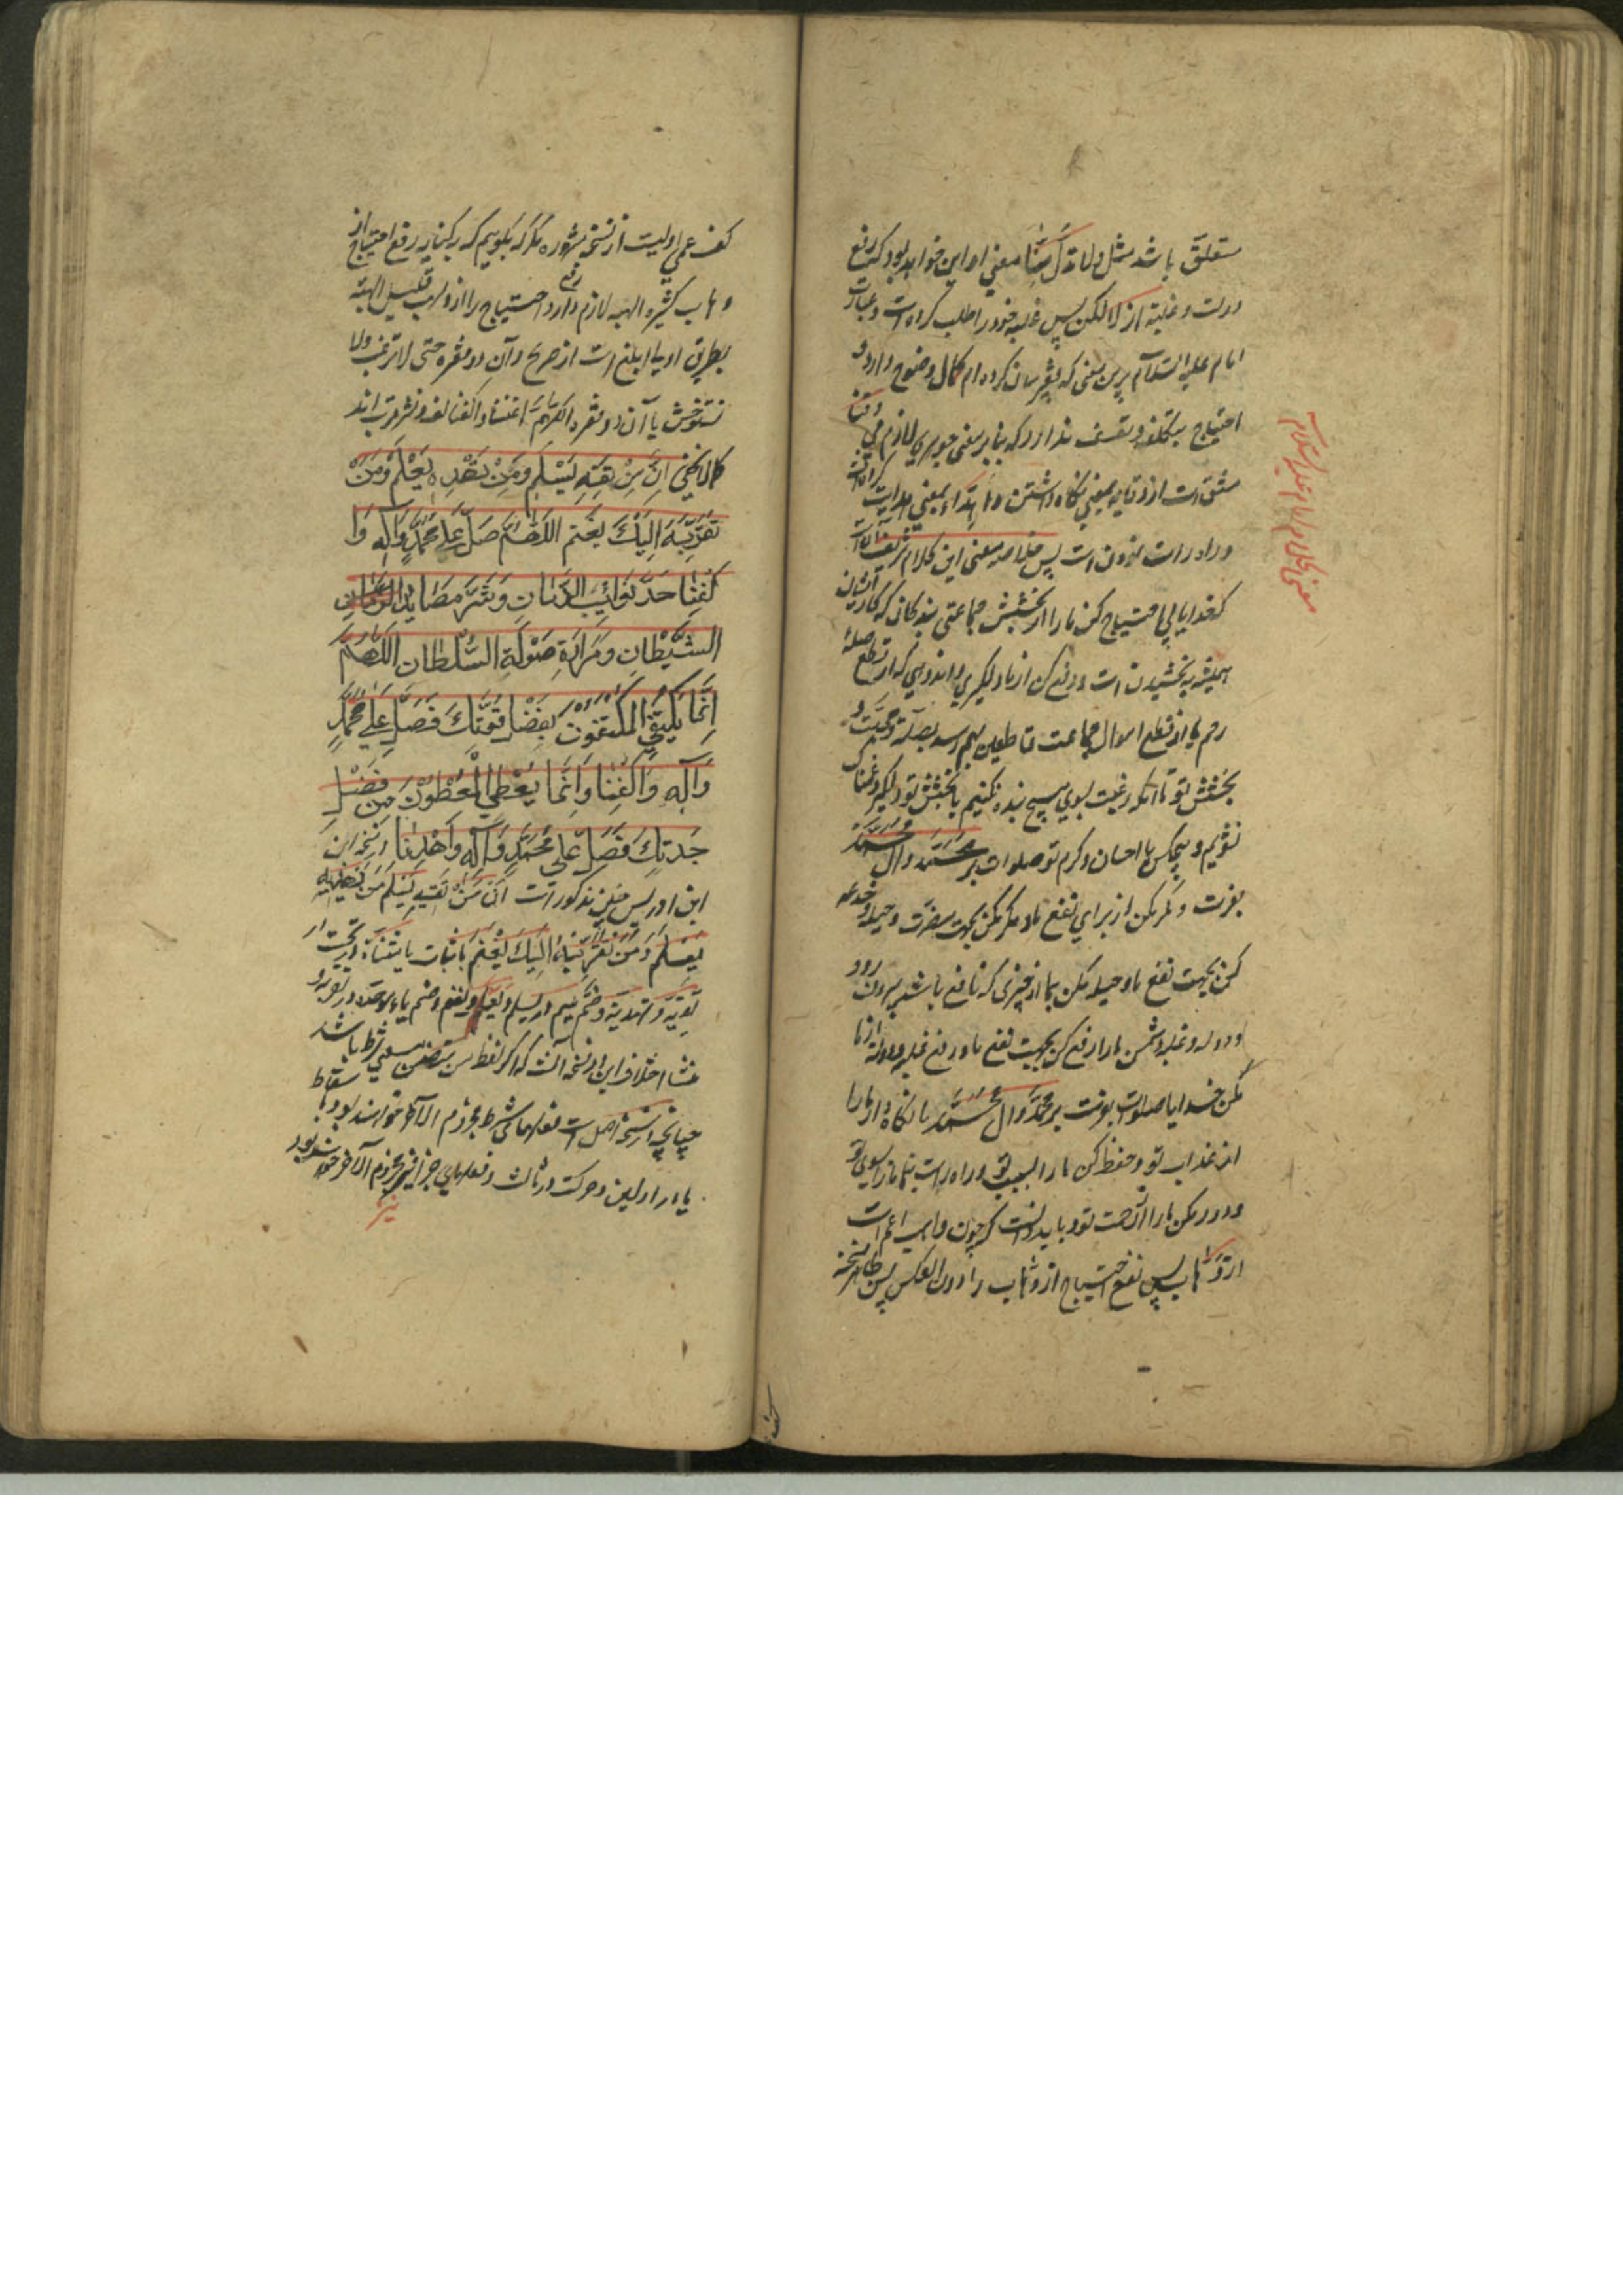 متعلق باشد مثل ولا تدل منا معنی او این خواهد بود که رفع
دولت و غلبه از ما مکن پس غلبه خود را طلب کرده است و عبارت
امام علیه السلام برین معنی که فقیر بیان کرده ام کمال وضوح دارد و
احتیاج بتکلف و تعسف ندارد که بنا بر معنی جوهری لازم می وقنا
مشتق است از وقایه بمعنی نگاه داشتن و اهتداء بمعنی هدایت
و راه راست نمودن است پس خلاصه معنی این کلام شریف آنست
که خدایا بی احتیاج کن ما را از بخشش جماعتی بندگان که کار ایشان
همیشه بخشیدن است و رفع کن از ما دلگیری و اندوهی که از قطع صله
رحم یا از قطع اموال جماعت قاطعین بهم رسد بصله و رحمت و
بخشش تو تا آنکه رغبت بسوی هیچ بنده نکنیم با بخشش تو و دلگیر و غمناک
نشویم و هیچکس با احسان و کرم تو صلوات بر محمد و آل محمد
بفرست و مکر کن از برای نفع ما و مکر مکن بجهت مضرت و حیله و خدعه
کن بجهت نفع ما و حیله مکن بما از چیزی که نافع باشد بیرون رود
و دوله و غلبه دشمن ما را رفع کن بجهت نفع ما و رفع غلبه و دوله از ما
مکن خدایا صلوات بفرست بر محمد و آل محمد ما نگاه دار ما را
از عذاب تو و حفظ کن ما را بسبب تو و راه راست بنما ما را بسوی تو
و دور مکن ما را از رحمت تو و باید دانست که چون واهب اعم است
از وهاب پس نفع احتیاج از وهاب را دون العکس پس ظاهر نسخه
معنی کلام امام علیه السلام
کفعمی اولیست از نسخه مشهوره مگر که بگوییم که بکنایه رفع احتیاج از
وهاب کثیره الهبه لازم دارد رفع احتیاج را از واهب قلیل الهبه
بطریق اولی ابلغ است از صریح و آن دو فقره حتی لا نرغب ولا
نستوحش با آن دو فقره اللهم اغننا و اکفنا لف و نشر مرتب اند
کما لا یخفی ان من تقه یسلم ومن تهده یعلم ومن
تقربه الیک یغنم اللهم صل علی محمد وآله وا
کفنا حد نوائب الزمان وشر مصاید
الشیطان ومرارة صولة السلطان اللهم
انما یکتفی المکتفون بفضل قوتک فصل علی محمد
وآله واکفنا وانما یعطی المعطون من فضل
جدتک فصل علی محمد وآله واهدنا در نسخه ابن
ابن ادریس چنین مذکور است ان من تقیه یسلم من تهدیه
یعلم ومن تقربه الیک یغنم باثبات یا مثناة تحت در
تقیه و تهدیه و ضم میم در یسلم و یعلم و یغنم و ضم یاء موحده در تقربه و
منشا اختلاف این دو نسخه آنست که اگر لفظ من متضمن معنی شرط باشد
چنانچه در نسخه اصل است فعلهای شرط مجزوم الآخر خواهند بود بسقاط
یا در اولین و حرکت در ثالث و فعلهای جزا نیز مجزوم الآخر خواهند بود